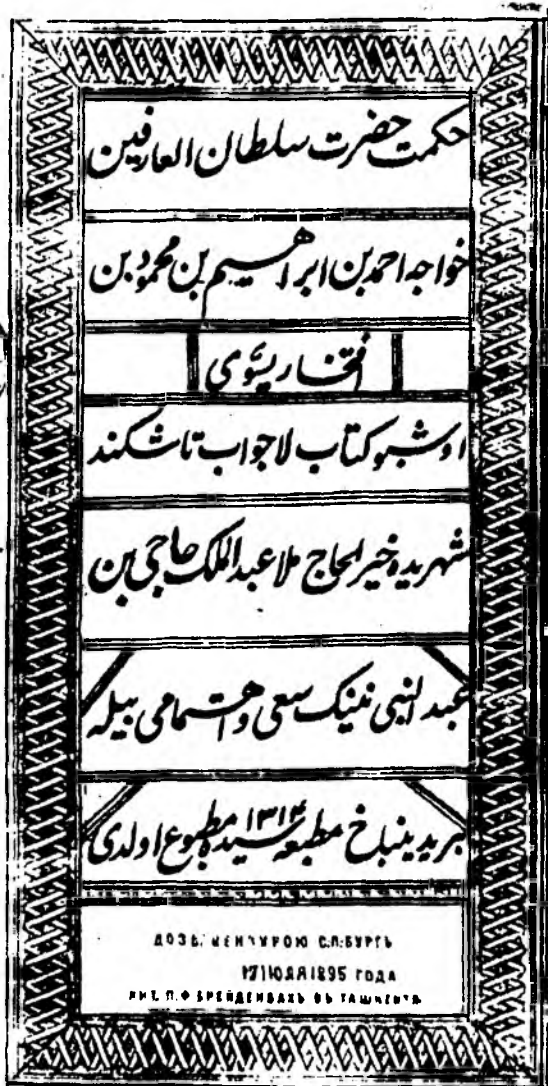 حکمت حضرت سلطان العارفین
خواجه احمد بن ابراهیم بن محمود بن
افتخار یسوی
اوشبو کتاب لاجواب تاشکند
شهریده خیر الحاج ملا عبد الملک حاجی بن
عبد النبی نینک سعی و اهتمامی بیله
بریدینباخ مطبعه سیده ۱۳۱۴ مطبوع اولدی
ДОЗВ. ЦЕНЗУРОЮ С.П.БУРГЪ
17 ІЮЛЯ 1895 ГОДА
ЛИТ. П.Ф БРЕЙДЕНБАХЪ ВЪ ТАШКЕНТѢ